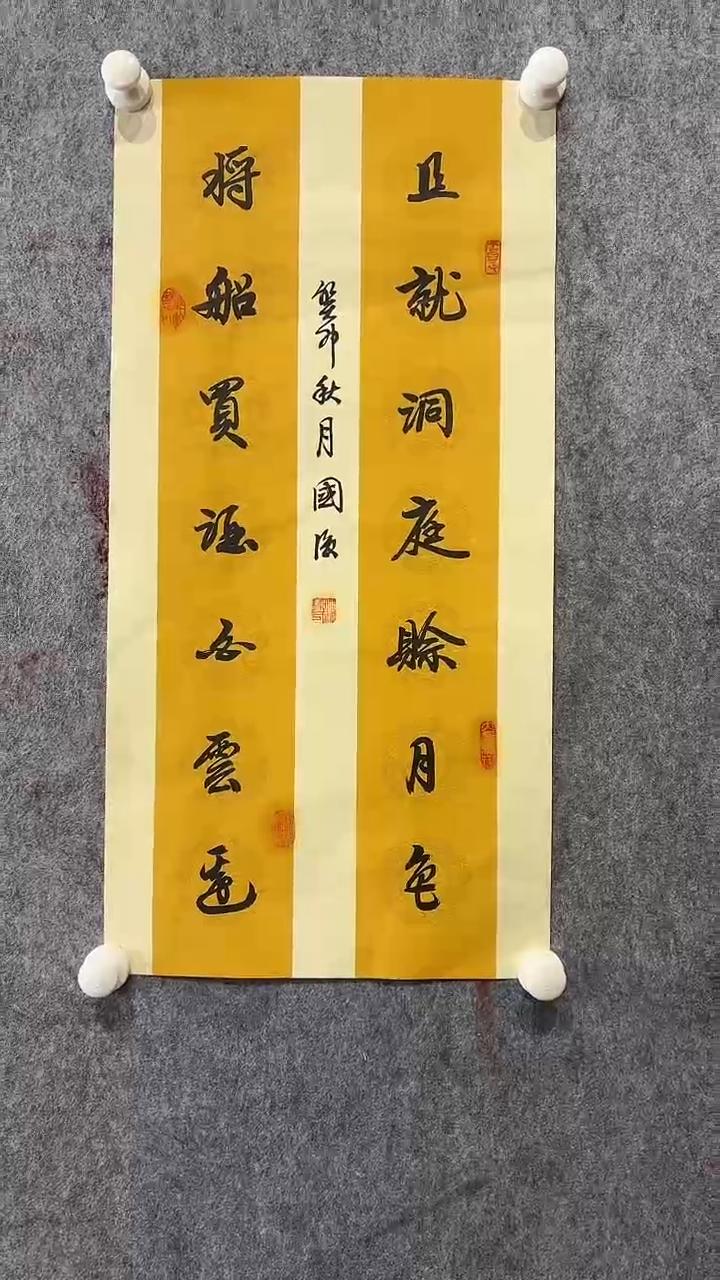 且就洞庭賒月色
将船買酒白雲邊
癸卯秋月國